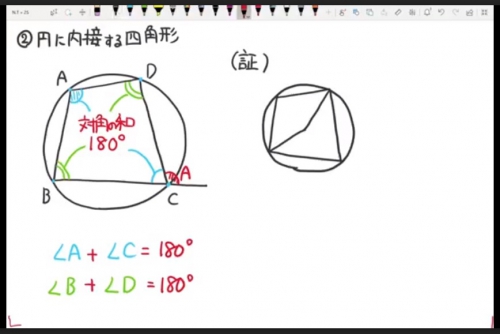 ②円に内接する四角形
(証)
A
D
対角の和
180°
A
B
C
∠A + ∠C = 180°
∠B + ∠D = 180°